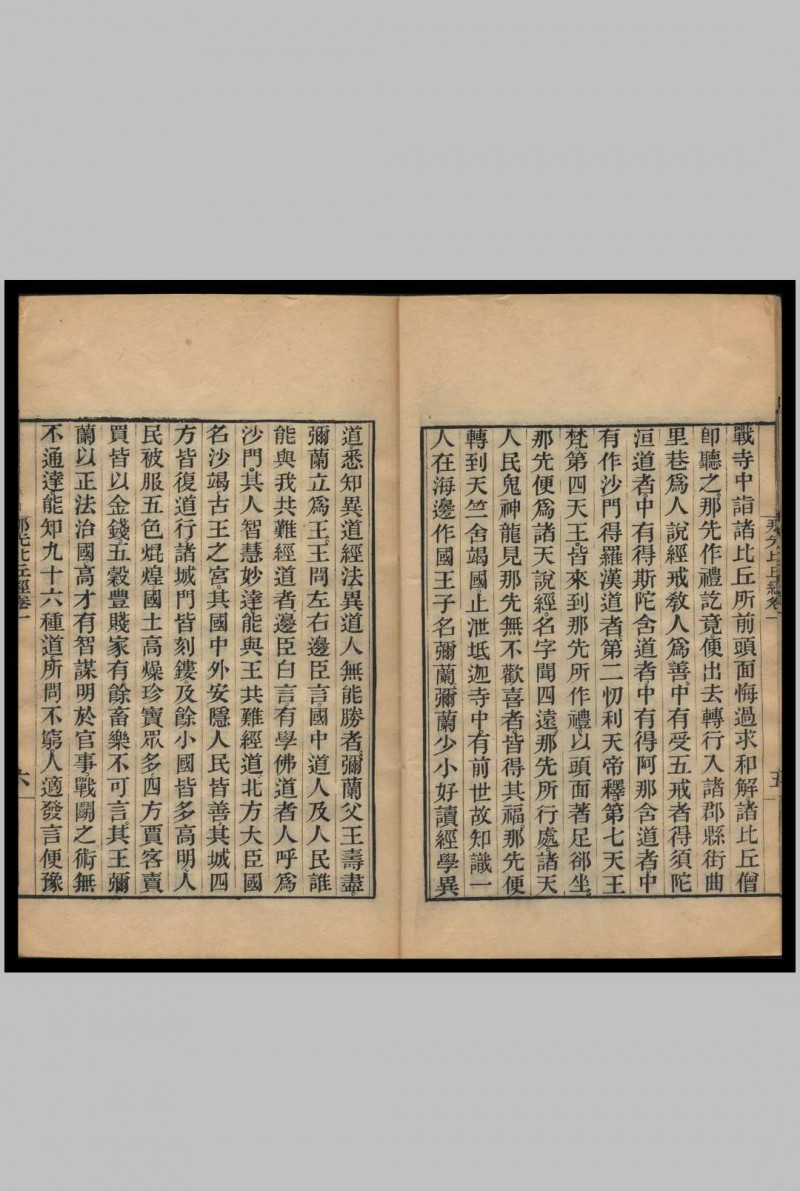 那先比丘經卷一
五
戰寺中詣諸比丘所前頭面悔過求和解諸比丘僧
卽聽之那先作禮訖竟便出去轉行入諸郡縣街曲
里巷爲人說經戒敎人爲善中有受五戒者得須陀
洹道者中有得斯陀含道者中有得阿那含道者中
有作沙門得羅漢道者第二忉利天帝釋第七天王
梵第四天王皆來到那先所作禮以頭面著足郤坐
那先便爲諸天說經名字聞四遠那先所行處諸天
人民鬼神龍見那先無不歡喜者皆得其福那先便
轉到天竺舍竭國止泄坻迦寺中有前世故知識一
人在海邊作國王子名彌蘭彌蘭少小好讀經學異
道悉知異道經法異道人無能勝者彌蘭父王壽盡
彌蘭立爲王王問左右邊臣言國中道人及人民誰
能與我共難經道者邊臣白言有學佛道者人呼爲
沙門其人智慧妙達能與王共難經道北方大臣國
名沙竭古王之宮其國中外安隱人民皆善其城四
方皆復道行諸城門皆刻鏤及餘小國皆多高明人
民被服五色焜煌國土高燥珍寶眾多四方賈客賣
買皆以金錢五穀豐賤家有餘畜樂不可言其王彌
蘭以正法治國高才有智謀明於官事戰鬭之術無
不通達能知九十六種道所問不窮人適發言便豫
那先比丘經卷一
六